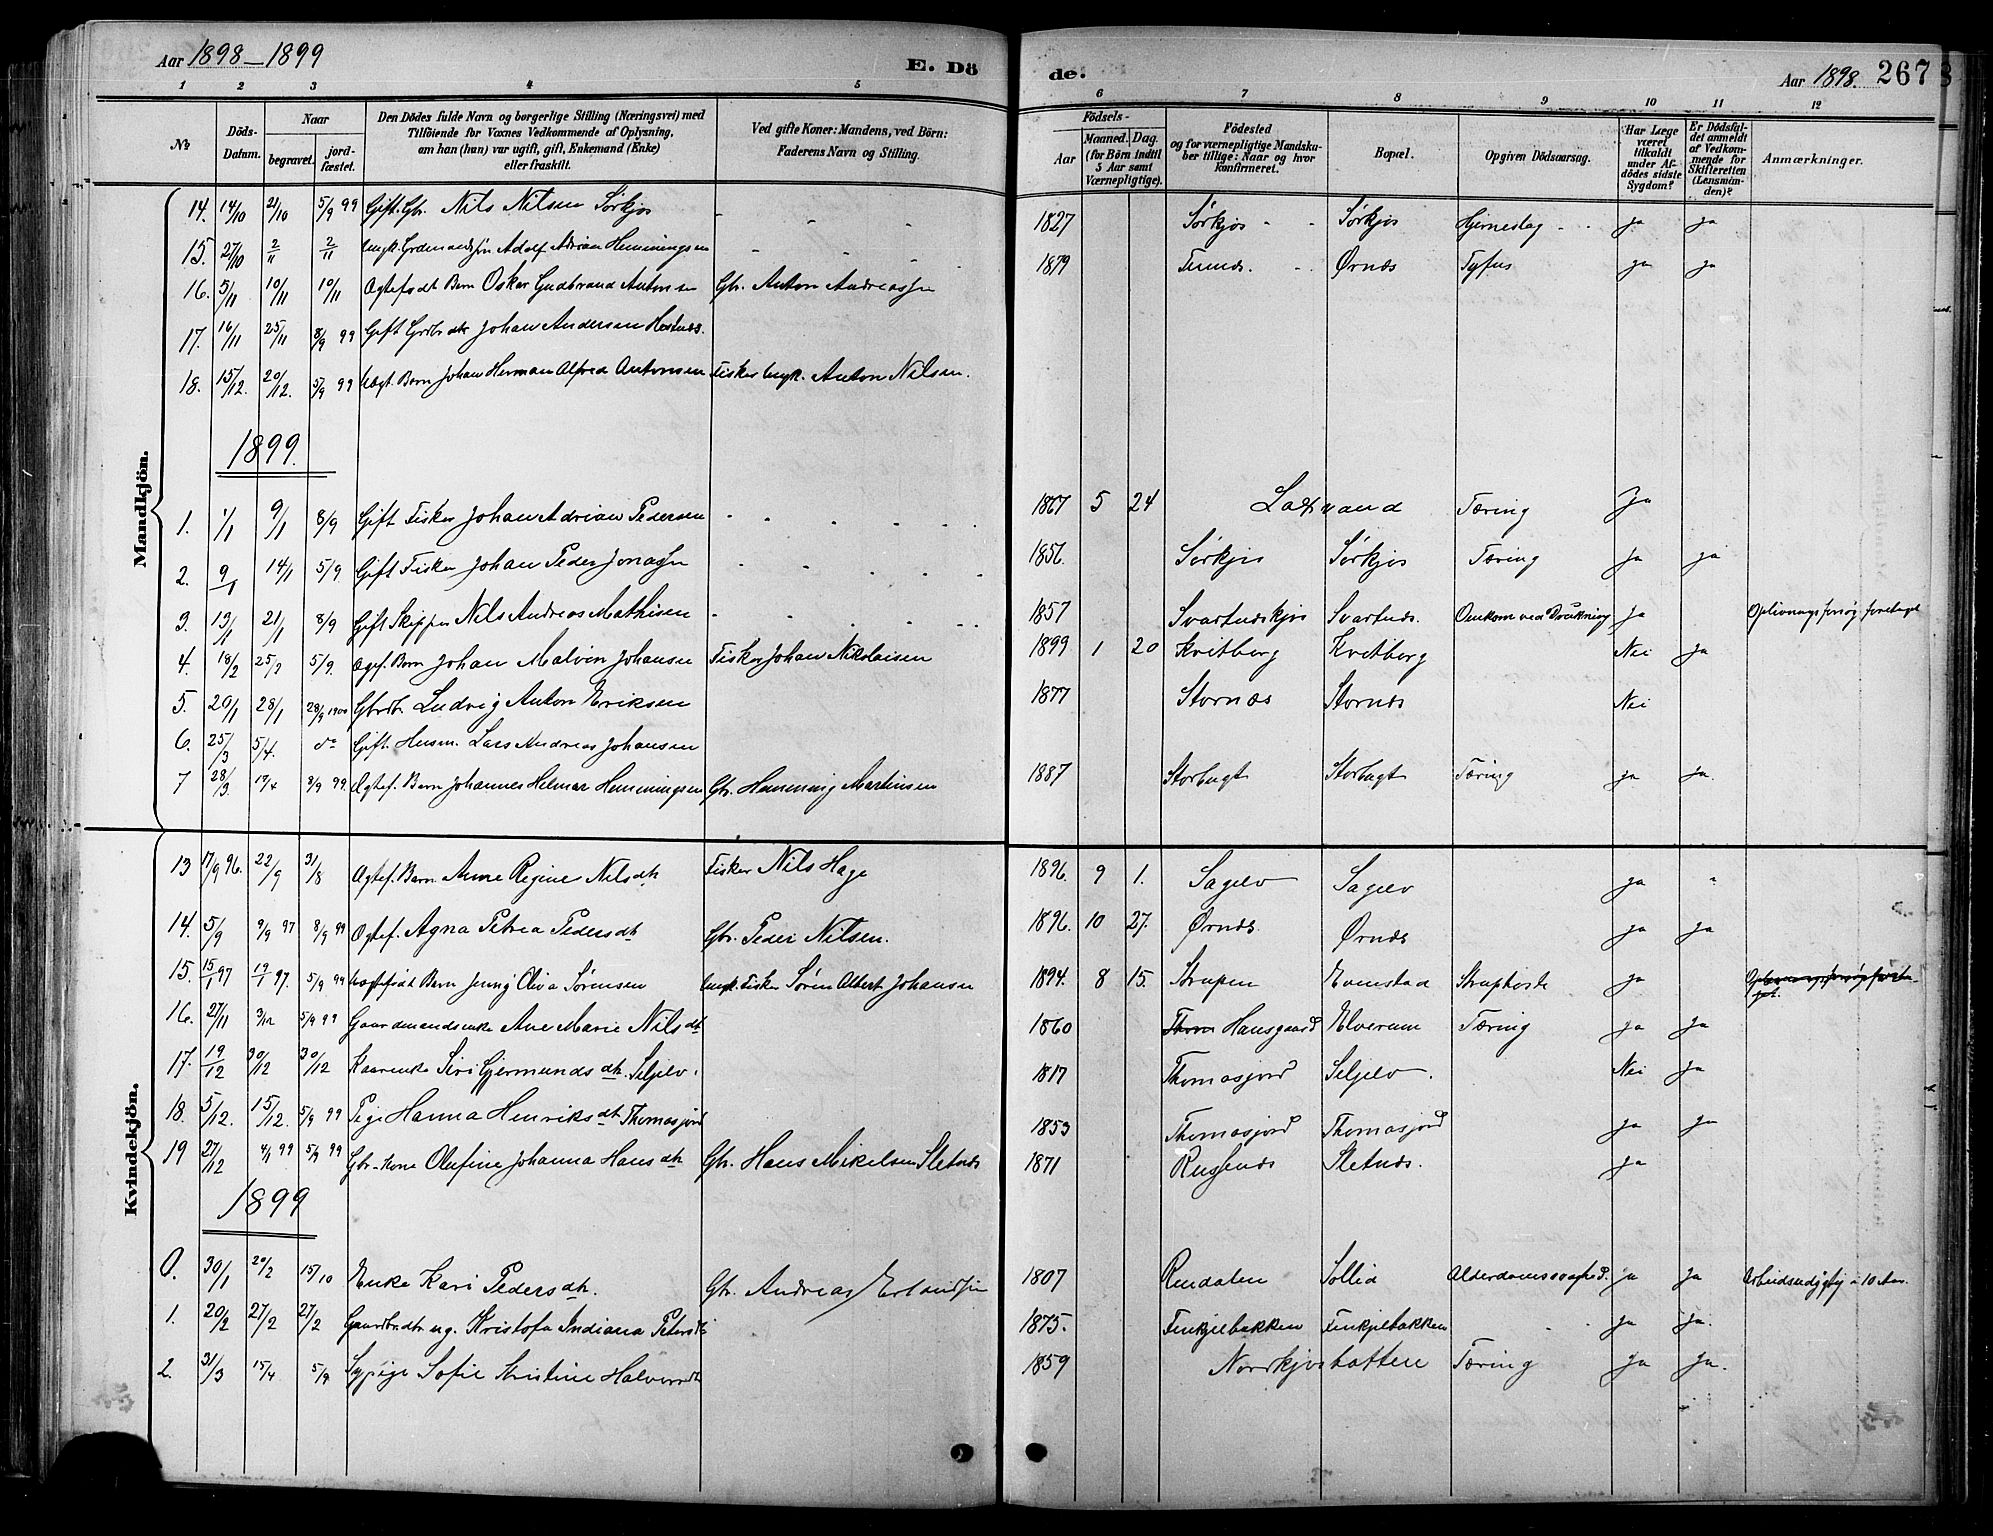 Aar 1898-1899
E. Dö
de.
Aar 1898.
267
1 2 3 4 5 6 7 8 9 10 11 12
№
Döds-Datum.
Naar
begravet.
jord-fæstet.
Den Dödes fulde Navn og borgerlige Stilling (Næringsvei) med
Tilföiende for Voxnes Vedkommende af Oplysning,
om han (hun) var ugift, gift, Enkemand (Enke)
eller fraskilt.
Ved gifte Koner: Mandens, ved Börn:
Faderens Navn og Stilling.
Födsels-
Aar
Maaned. Dag.
(for Börn indtil
5 Aar samt
Værnepligtige).
Födested
og for værnepligtige Mandska-
ber tillige: Naar og hvor
konfirmeret.
Bopæl.
Opgiven Dödsaarsag.
Har Læge
været
tilkaldt
under Af-
dödes sidste
Sygdom?
Er Dödsfal-
det anmeldt
af Vedkom-
mende for
Skifteretten
(Lensman-
den)?
Anmærkninger.
Mandkjön.
14. 14/10 21/10 5/9 99 Gift. Gbr. Nils Nilsen Sørkjos 1827 Sørkjos Sørkjos Hjerneslag ja ja
15. 27/10 2/11 2/11 Adolf Adrian Hemmingsen 1879 Ørnæs Tyfus ja ja
16. 5/11 10/11 10/11 Ægtefødt Barn Oskar Gudbrand Antonsen Gbr. Anton Andreassen
17. 16/11 25/11 8/9 99 Gift Johan Andersen
18. 15/12. 20/12. 5/9 99 Uægt. Barn Johan Herman Alfred Antonsen Fisker Ungk. Anton Nilsen.
1899.
1. 1/1 9/1 8/9 Gift Fisker Johan Adrian Pedersen 1867 5 24 Laxvand Tæring Ja
2. 9/1 14/1 5/9. Gift Fisker Johan Peder Jonassen 1856. Sørkjos Sørkjos Tæring ja ja
3. 13/1 21/1 8/9 Gift Skipper Nils Andreas Mathisen 1857 Svartnæskjos Svartnæs. Omkom ved Drukning ja Oplivningsforsøg foretaget
4. 18/2 25/2 5/9. Ægtef. Barn Johan Malvin Johansen Fisker Johan Nikolaisen 1899 1 20 Kvitberg Kvitberg Nei ja
5. 20/1 28/1 28/9 1900 Gbrdr. Ludvig Anton Eriksen 1877 Stornæs Stornæs Nei
6. 25/3 5/4. do Gift. Husm. Lars Andreas Johansen
7 28/3 17/4 8/9 99. Ægtef. Barn Johannes Helmar Hemmingsen Gbr. Hemming Martinsen 1887 Storbugt Storbugt Tæring ja ja.
Kvindekjön.
13 17/9 96. 22/9 31/8 Ægtef. Barn Anne Regine Nilsdtr Fisker Nils Hage 1896. 9 1. Sagelv Sagelv ja "
14. 5/9 9/9 97 8/9 99 Ægtef. Agna Petrea Pedersdtr Gbr. Peder Nilsen. 1896. 10 27. Ørnæs. Ørnæs ja ja
15. 15/1 97 19/1 97. 5/9 99 Uægtefødt Barn Jenny Oliva Sørensen Ungk. Fisker Søren Albert Johansen 1894. 8 15. Strupen Evenstad Struphoste ja
16. 27/11 3/12 5/9 99 Gaardmandsenke Ane Marie Nilsdtr 1860 Thom Hansgaard Elverum Tæring ja ja
17. 19/12 30/12 30/12 Kaarenke Siri Gjermundsdtr. Seljelv 1817 Thomasjord Seljelv. Nei ja
18. 5/12. 15/12. 5/9 99 Pige Hanna Henriksdtr Thomasjord 1853 Thomasjord Thomasjord ja ja
19 27/12 4/1 99 5/9 99 Gbr.-kone Olufine Johanna Hansdtr Gbr. Hans Mikelsen Sletnæs 1871 Russenæs Sletnæs. ja
1899
0. 30/1 20/2 15/10 Enke Kari Pedersdtr. Gbr. Andreas Erlandsen 1807 Rendalen Sollid Alderdomssvaghed. ja ja
1. 20/2 27/2 27/2 Gaardbrdtr. ug. Kristofa Indiana Petersdtr 1875. Finkjelbakken Finkjelbakken ja ja.
2. 31/3 15/4 5/9 Sypige Sofie Kristine Halvorsdtr 1859 Nordkjosbotten Tæring ja ja.